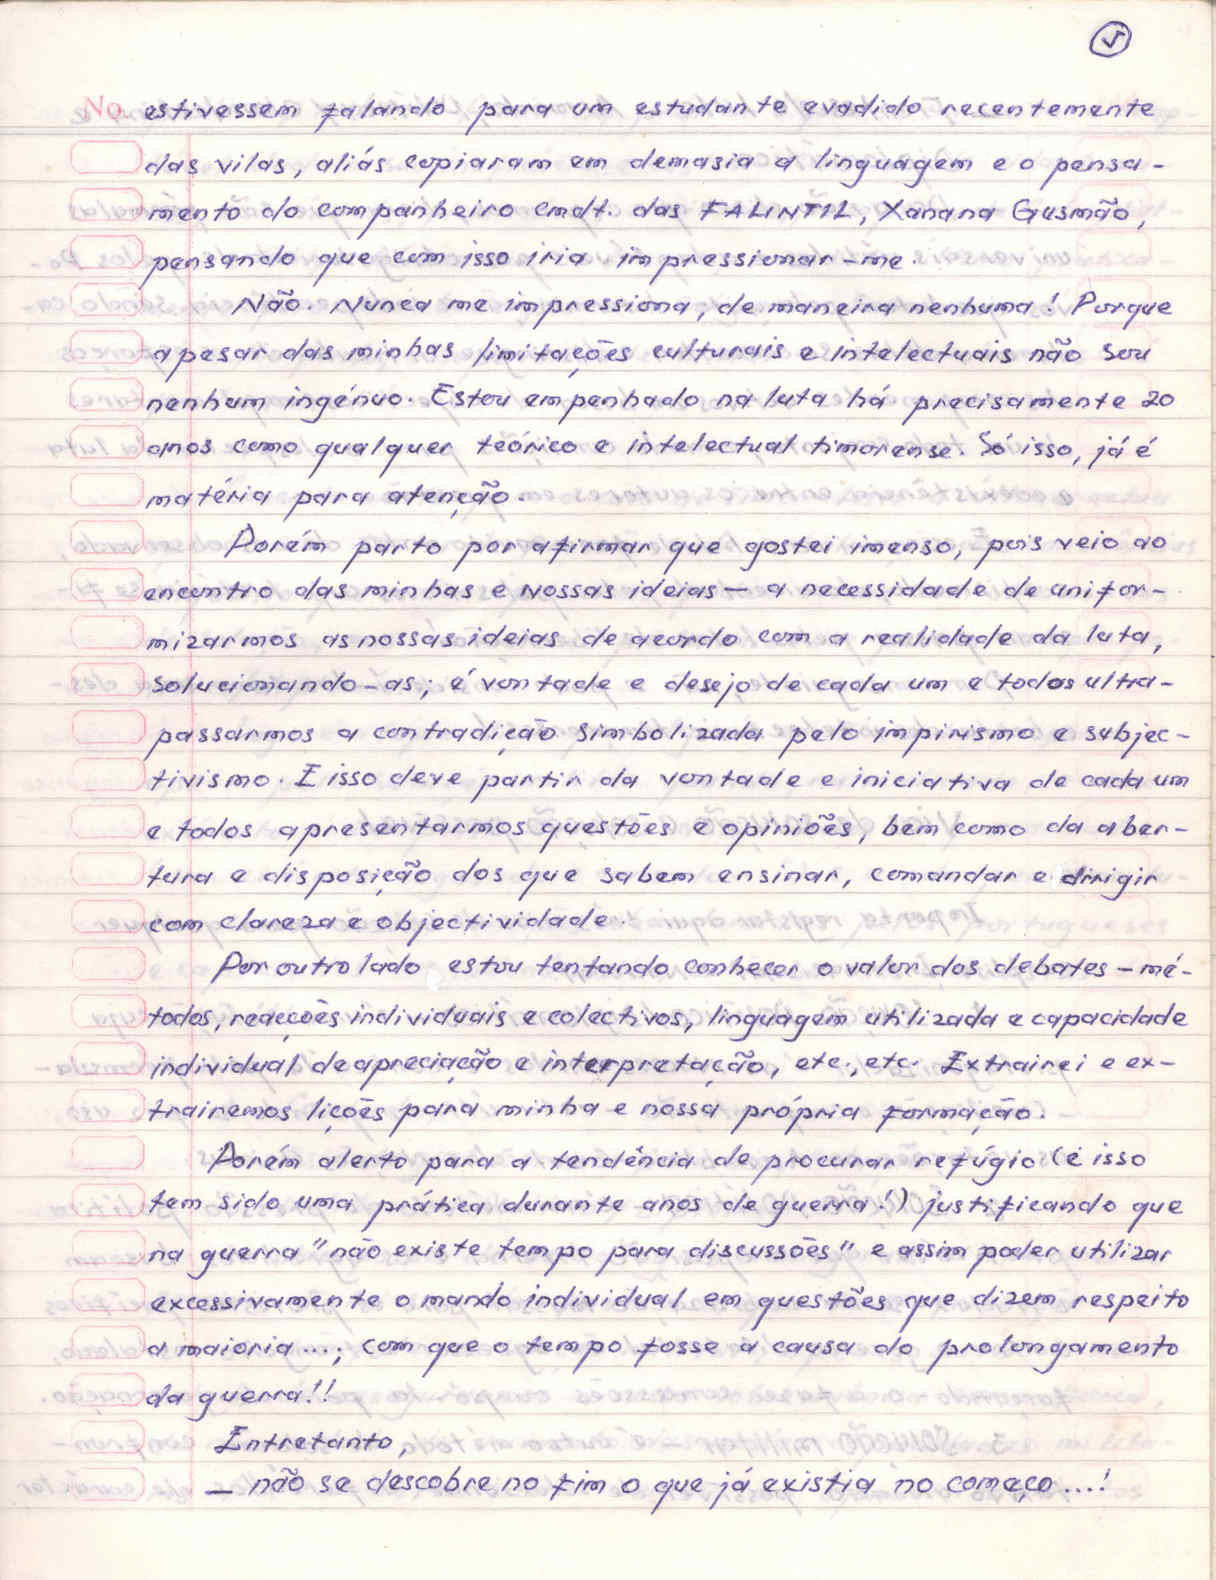 5
No. estivessem falando para um estudante evadido recentemente
das vilas, aliás copiaram em demasia a linguagem e o pensa-
mento do companheiro cmdt. das FALINTIL, Xanana Gusmão,
pensando que com isso iria impressionar-me.
Não. Nunca me impressiona, de maneira nenhuma! Porque
apesar das minhas limitações culturais e intelectuais não sou
nenhum ingénuo. Estou empenhado na luta há precisamente 20
anos como qualquer teórico e intelectual timorense. Só isso, já é
matéria para atenção.
Porém parto por afirmar que gostei imenso, pois veio ao
encontro das minhas e nossas ideias — a necessidade de unifor-
mizarmos as nossas ideias de acordo com a realidade da luta,
solucionando-as; é vontade e desejo de cada um e todos ultra-
passarmos a contradição simbolizada pelo impirismo e subjec-
tivismo. E isso deve partir da vontade e iniciativa de cada um
e todos apresentarmos questões e opiniões, bem como da aber-
tura e disposição dos que sabem ensinar, comandar e dirigir
com clareza e objectividade.
Por outro lado estou tentando conhecer o valor dos debates - mé-
todos, reacções individuais e colectivos, linguagem utilizada e capacidade
individual de apreciação e interpretação, etc., etc. Extrairei e ex-
trairemos lições para minha e nossa própria formação.
Porém alerto para a tendência de procurar refúgio (é isso
tem sido uma prática durante anos de guerra!) justificando que
na guerra "não existe tempo para discussões" e assim poder utilizar
excessivamente o mando individual em questões que dizem respeito
a maioria ...; com que o tempo fosse a causa do prolongamento
da guerra!!
Entretanto,
— não se descobre no fim o que já existia no começo ....!